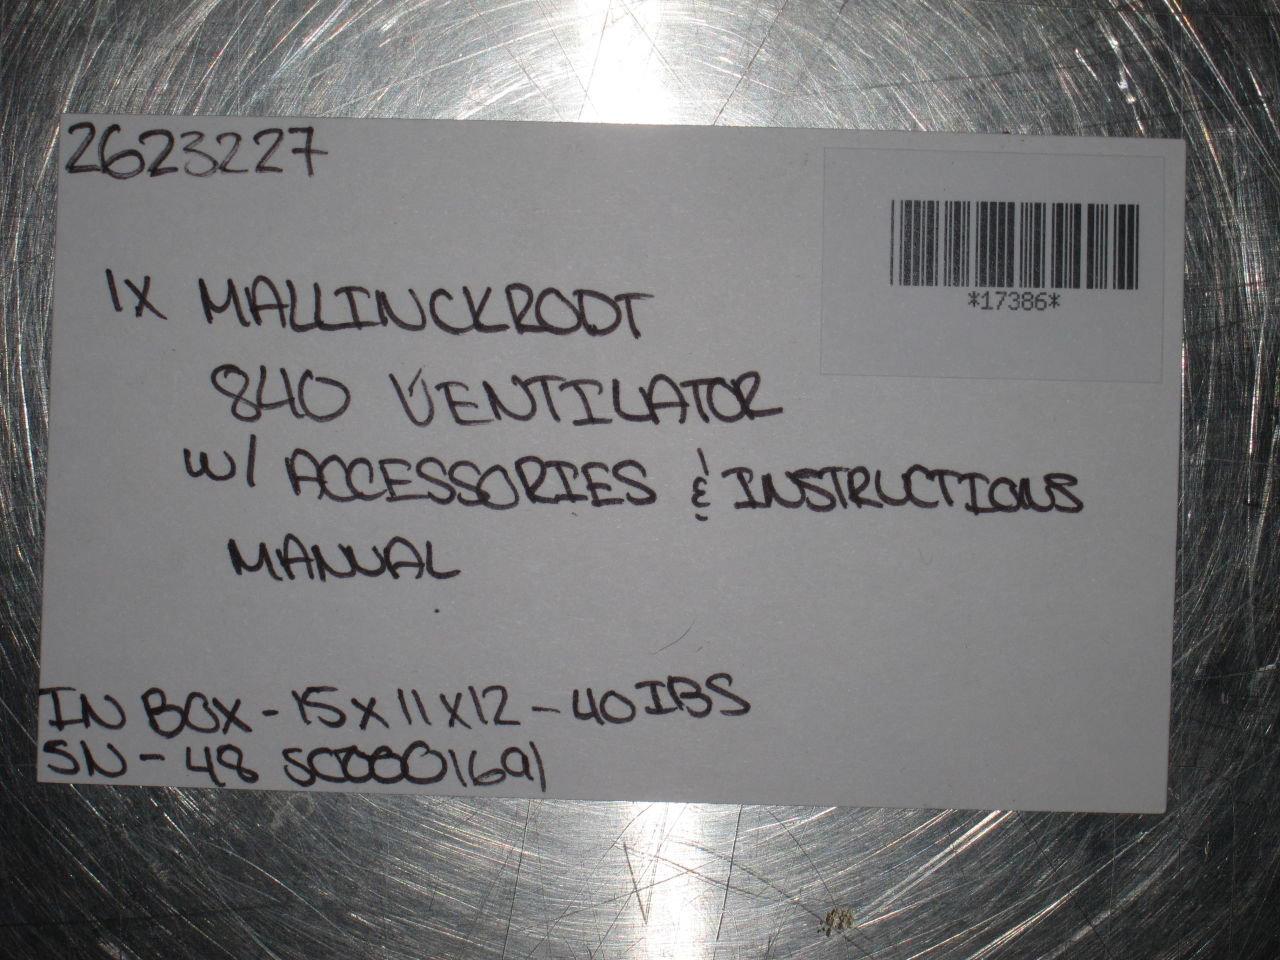 2623227
*17386*
1X MALLINCKRODT
840 VENTILATOR
W/ ACCESSORIES & INSTRUCTIONS
MANUAL
IN BOX - 15 X 11 X 12 - 40 IBS
SN - 48